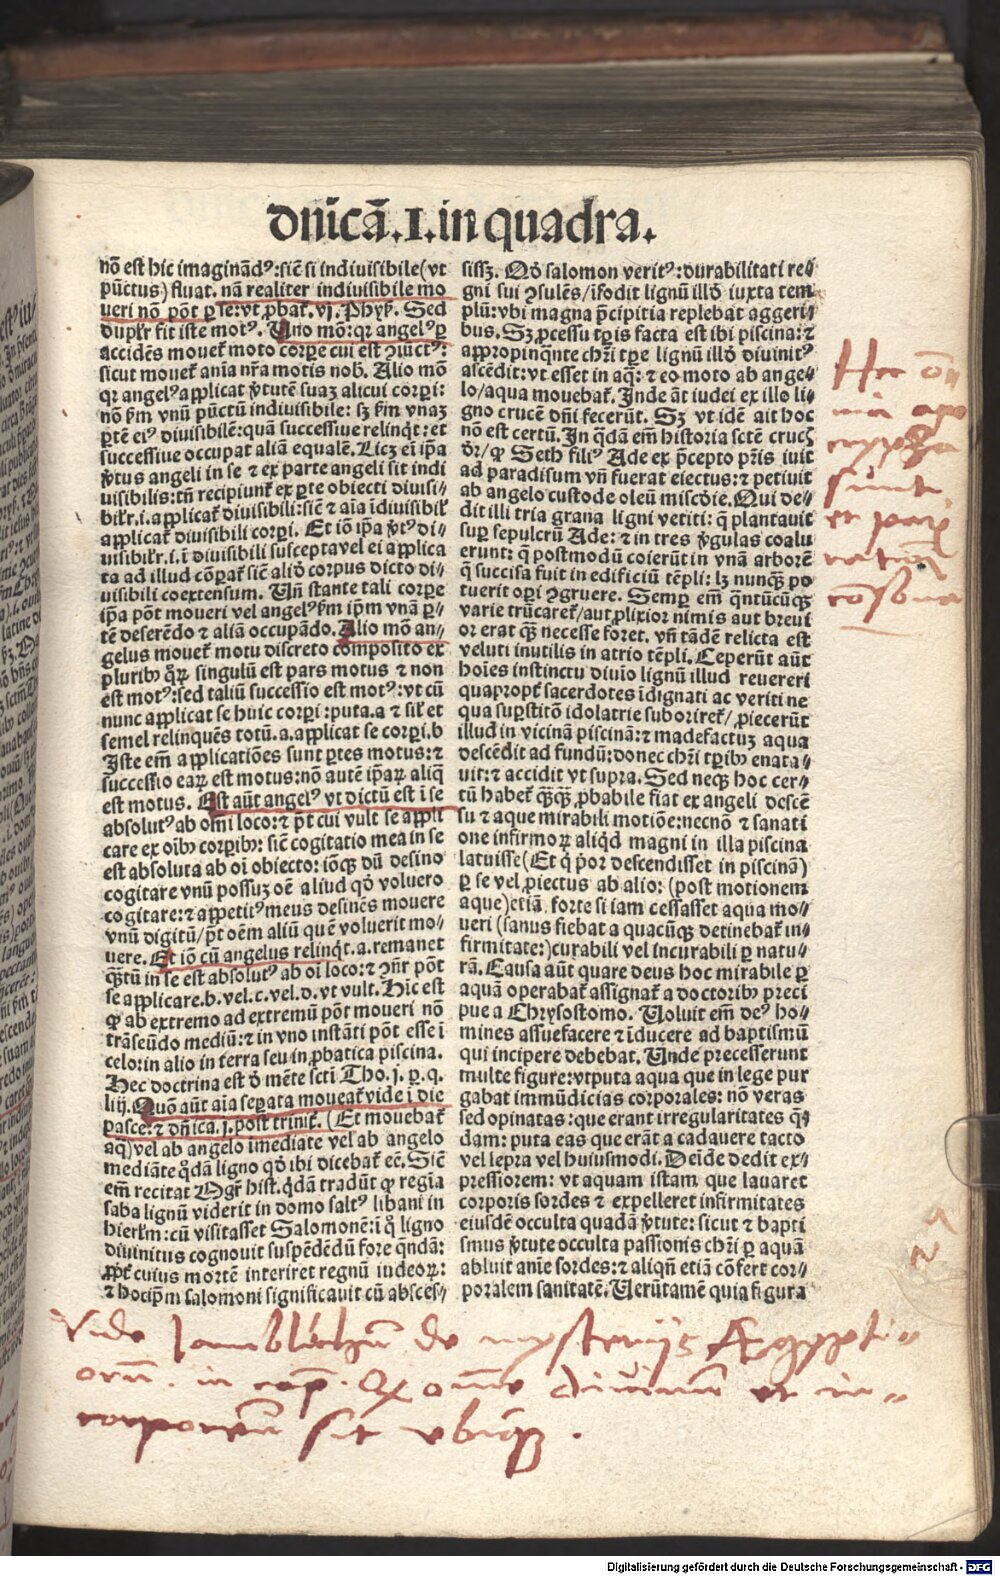 dnicā.I.in quadra.
nō est hic imaginādꝰ:sicut si indiuisibile(vt
pūctus) fluat. nā realiter indiuisibile mo
ueri nō pōt ꝑ se:vt ꝓbat̄. vj. Phys. Sed
duplr̄ fit iste motꝰ. Uno mō:qꝛ angelꝰ ꝑ
accidēs mouet̄ moto corꝑe cui est ꝯiūctꝰ:
sicut mouet̄ anīa nr̄a motis nob̄. Alio mō
qꝛ angelꝰ applicat v̓tutē suaꝫ alicui corꝑi:
nō ẜm vnū pūctū indiuisibile: sꝫ ẜm vnaꝫ
ꝑtē eiꝰ diuisibilē:quā successiue relinq̄t:et
successiue occupat aliā equalē. Licꝫ em̄ ip̄a
v̓tus angeli in se ⁊ ex parte angeli sit indi
uisibilis:tn̄ recipiunt̄ ex ꝑte obiecti diuisi⸗
bilr̄.i.applicat̄ diuisibili:sicut ⁊ aīa īdiuisibilr̄
applicat̄ diuisibili corꝑi. Et iō ip̄a v̓tꝰ di⸗
uisibilr̄.i.ī diuisibili suscepta vel ei applica
ta ad illud cōꝑat̄ sicut aliqd̄ corpus dicto di⸗
uisibili coextensum. Un̄ stante tali corꝑe
ip̄a pōt moueri vel angelꝰ ẜm ip̄m vnā ꝑ⸗
tē deserēdo ⁊ aliā occupādo. Alio mō an⸗
gelus mouet̄ motu discreto composito ex
pluribꝰ qꝛ singulū est pars motus ⁊ non
est motꝰ:sed taliū successio est motꝰ:vt cū
nunc applicat se huic corꝑi:puta.a ⁊ sil̄ et
semel relinquēs totū.a.applicat se corꝑi.b
Iste em̄ applicatiōes sunt ꝑtes motus:⁊
successio eaꝝ est motus:nō autē ip̄aꝝ aliq̄
est motus. Est aūt angelꝰ vt dictū est ī se
absolutꝰ ab om̄i loco:⁊ pōt cui vult se appli
care ex oībꝰ corꝑibꝰ:sicut cogitatio mea in se
est absoluta ab oī obiecto: iōqꝫ dū desino
cogitare vnū possuꝫ oē aliud qd̄ voluero
cogitare:⁊ appetitꝰ meus desinēs mouere
vnū digitū/pōt oēm aliū quē voluerit mo⸗
uere. Et iō cū angelus relinq̄t.a.remanet
qꝫtū in se est absolutꝰ ab oī loco:⁊ ꝯn̄r pōt
se applicare.b.vel.c.vel.d.vt vult. Hic est
ꝙ ab extremo ad extremū pōt moueri nō
trāseūdo mediū:⁊ in vno instāti pōt esse ī
celo:in alio in terra seu in ꝓbatica piscina.
Hec doctrina est d̓ mēte scti Tho.j.p.q.
lij. Quō aūt aīa seꝑata moueat̄ vide ī die
pasce:⁊ dn̄ica.j.post trinit̄. (Et mouebat̄
aq̄)vel ab angelo imediate vel ab angelo
mediāte q̄dā ligno qd̄ ibi dicebat̄ eē. Sicut
em̄ recitat Mgr̄ hist.q̄dā tradūt ꝙ regīa
saba lignū viderit in domo saltꝰ libani in
hierlm̄:cū visitasset Salomonē:ī q̄ ligno
diuinitus cognouit suspēdēdū fore q̄ndā:
ꝓpt̄ cuius mortē interiret regnū iudeoꝝ:
⁊ hocip̄m salomoni significauit cū absces⸗
sissꝫ. Qd̄ salomon veritꝰ:durabilitati re⸗
gni sui ꝯsulēs/īfodit lignū illd̄ iuxta tem
plū:vbi magna p̄cipitia replebat aggeri⸗
bus. Sꝫ ꝓcessu tꝑis facta est ibi piscina:⁊
appropinq̄nte chr̄i tꝑe lignū illd̄ diuinitꝰ
ascēdit:vt esset in aq̄:⁊ eo moto ab ange⸗
lo/aqua mouebat̄. Inde āt iudei ex illo li⸗
gno crucē dn̄i fecerūt. Sꝫ vt idē ait hoc
nō est certū. In q̄dā em̄ historia sctē crucꝭ
dr̄/ꝙ Seth filiꝰ Ade ex p̄cepto pr̄is iuit
ad paradisum vn̄ fuerat eiectus:⁊ petiuit
ab angelo custode oleū mīscd̄ie. Qui de⸗
dit illi tria grana ligni vetiti: q̄ plantauit
suꝑ sepulcrū Ade:⁊ in tres v̓gulas coalu
erunt: q̄ postmodū coierūt in vnā arborē
q̄ succisa fuit in edificiū tēpli: lꝫ nunqꝫ po
tuerit oꝑi ꝯgruere. Semꝑ em̄ q̄ntūcūqꝫ
varie trūcaret̄/aut ꝓlixior nimis aut breui
or erat qꝫ necesse foret. vn̄ tādē relicta est
veluti inutilis in atrio tēpli. Ceperūt aūt
hoīes instinctu diuīo lignū illud reuereri
quapropt̄ sacerdotes īdignati ac veriti ne
qua suꝑstitō idolatrie suboriret̄/ꝓiecerūt
illud in vicinā piscinā:⁊ madefactuꝫ aqua
descēdit ad fundū:donec chr̄i tꝑibꝰ enata⸗
uit:⁊ accidit vt supra. Sed neqꝫ hoc cer⸗
tū habet̄ qꝫqꝫ ꝓbabile fiat ex angeli descē
su ⁊ aque mirabili motiōe:necnō ⁊ sanati
one infirmoꝝ aliqd̄ magni in illa piscina
latuisse(Et q̄ p̓or descendisset in piscinā)
ꝑ se vel ꝓiectus ab alio: (post motionem
aque)etiā forte si iam cessasset aqua mo⸗
ueri (sanus fiebat a quacūqꝫ detinebat̄ in⸗
firmitate:)curabili vel incurabili ꝑ natu⸗
rā. Causa aūt quare deus hoc mirabile ꝑ
aquā operabat̄ assignat̄ a doctoribꝰ preci
pue a Chrysostomo. Uoluit em̄ deꝰ ho⸗
mines assuefacere ⁊ īducere ad baptismū
qui incipere debebat. Unde precesserunt
multe figure:vtputa aqua que in lege pur
gabat immūdicias corporales: nō veras
sed opinatas:que erant irregularitates q̄⸗
dam: puta eas que erāt a cadauere tacto
vel lepra vel huiusmodi. Deīde dedit ex⸗
pressiorem: vt aquam istam que lauaret
corporis sordes ⁊ expelleret infirmitates
eiusdē occulta quadā v̓tute: sicut ⁊ bapti
smus v̓tute occulta passionis chr̄i ꝑ aquā
abluit anīe sordes:⁊ aliqn̄ etiā cōfert cor⸗
poralem sanitatē. Uerūtamē quia figura
Hec ōm
nia apo
crypha
sunt,
et parū
cōsona
Vide Iamblichum de mysteriis Aegypti⸗
orū. in cap. Qꝫ omne diuinum et in⸗
corporeū sit vbiqꝫ.
Digitalisierung gefördert durch die Deutsche Forschungsgemeinschaft - DFG